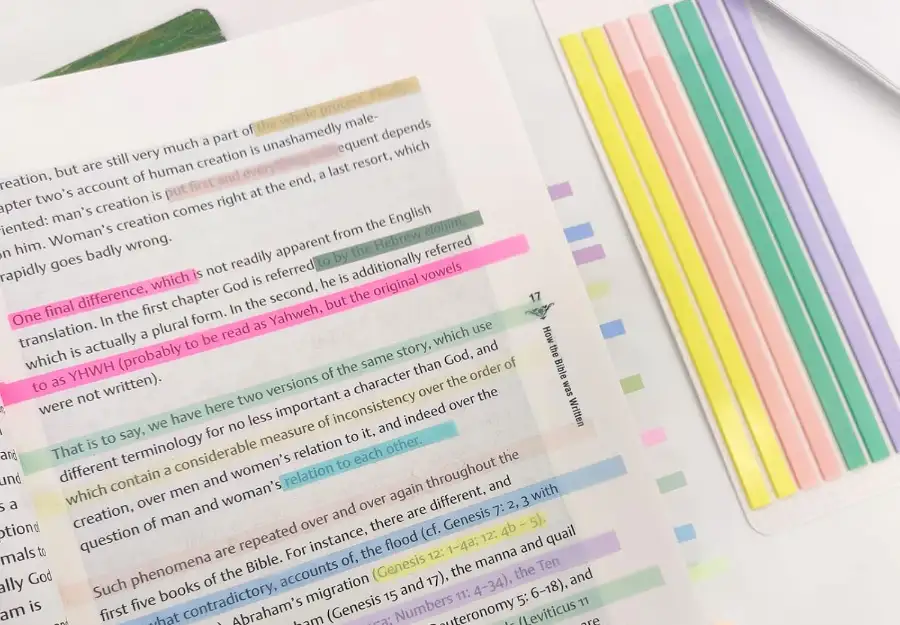 reation, but are still very much a part of the whole process.
apter two's account of human creation is unashamedly male-
iented: man's creation is put first and everything equent depends
n him. Woman's creation comes right at the end, a last resort, which
rapidly goes badly wrong.
One final difference, which is not readily apparent from the English
translation. In the first chapter God is referred to by the Hebrew elohim,
which is actually a plural form. In the second, he is additionally referred
to as YHWH (probably to be read as Yahweh, but the original vowels
were not written).
That is to say, we have here two versions of the same story, which use
different terminology for no less important a character than God, and
which contain a considerable measure of inconsistency over the order of
creation, over men and women's relation to it, and indeed over the
question of man and woman's relation to each other.
Such phenomena are repeated over and over again throughout the
first five books of the Bible. For instance, there are different, and
what contradictory, accounts of, the flood (cf. Genesis 7: 2, 3 with
), Abraham's migration (Genesis 12: 1–4a; 12: 4b – 5),
ham (Genesis 15 and 17), the manna and quail
Numbers 11: 4–34), the Ten
Deuteronomy 5: 6–18), and
(Leviticus 11
are
17
How the Bible was Written
and
und
s a
ption
mals to
ally God
am is